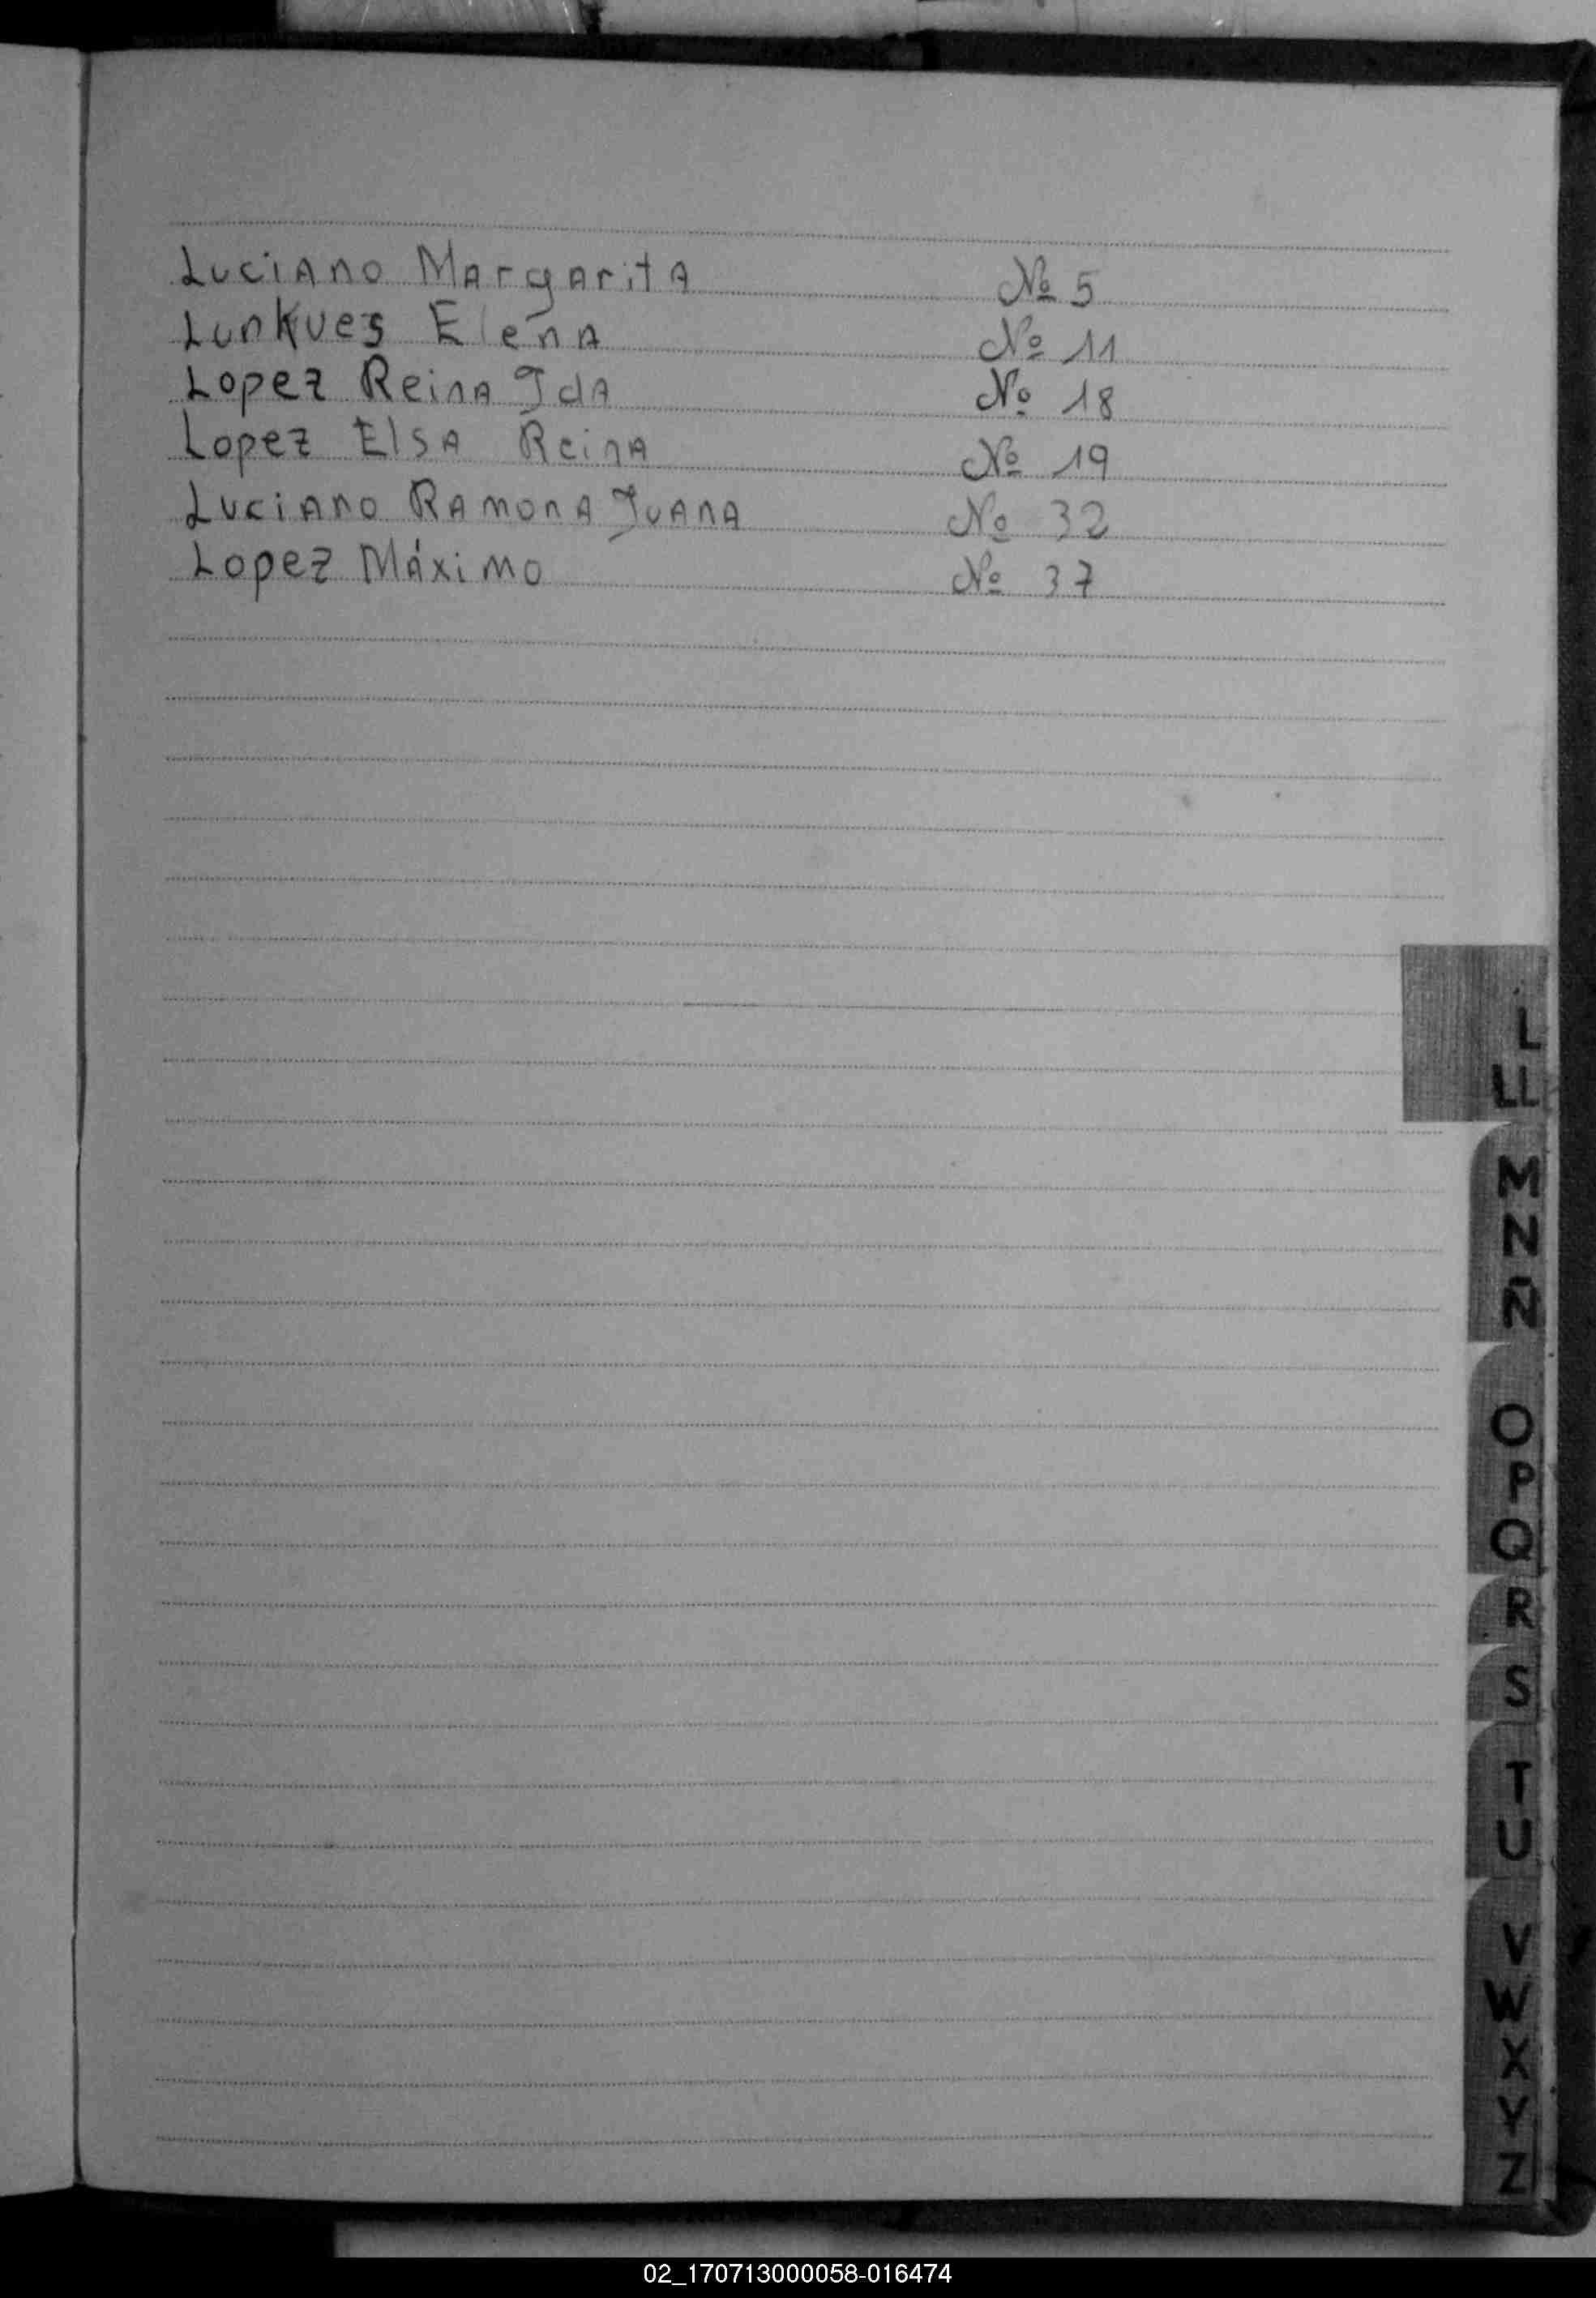 Luciano Margarita Nº 5
Lunkues Elena Nº 11
Lopez Reina Ida Nº 18
Lopez Elsa Reina Nº 19
Luciano Ramona Juana Nº 32
Lopez Máximo Nº 37
L
LL
M
N
Ñ
O
P
Q
R
S
T
U
V
W
X
Y
Z
02_170713000058-016474